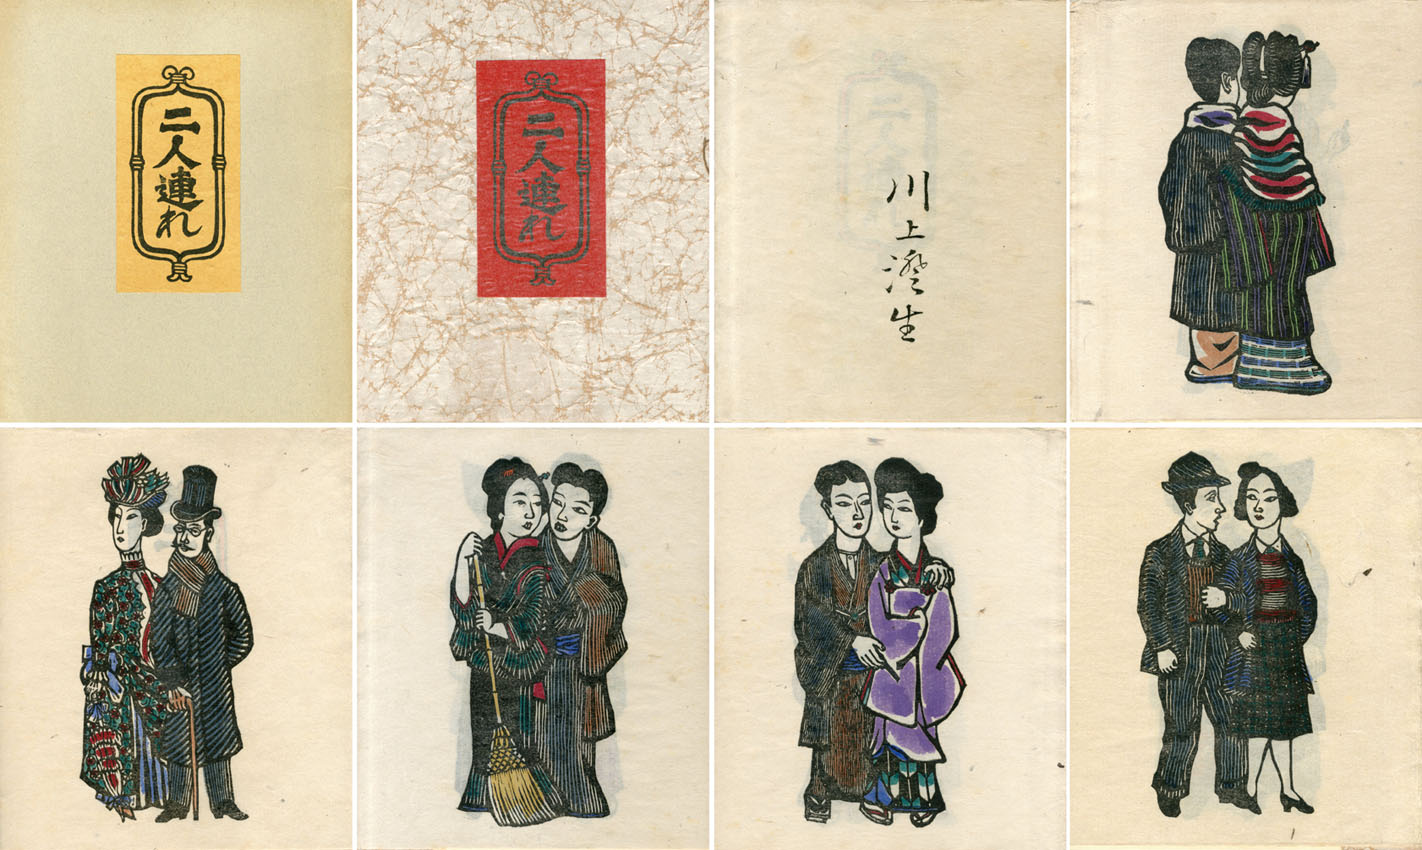 二人連れ
二人連れ
川上澄生